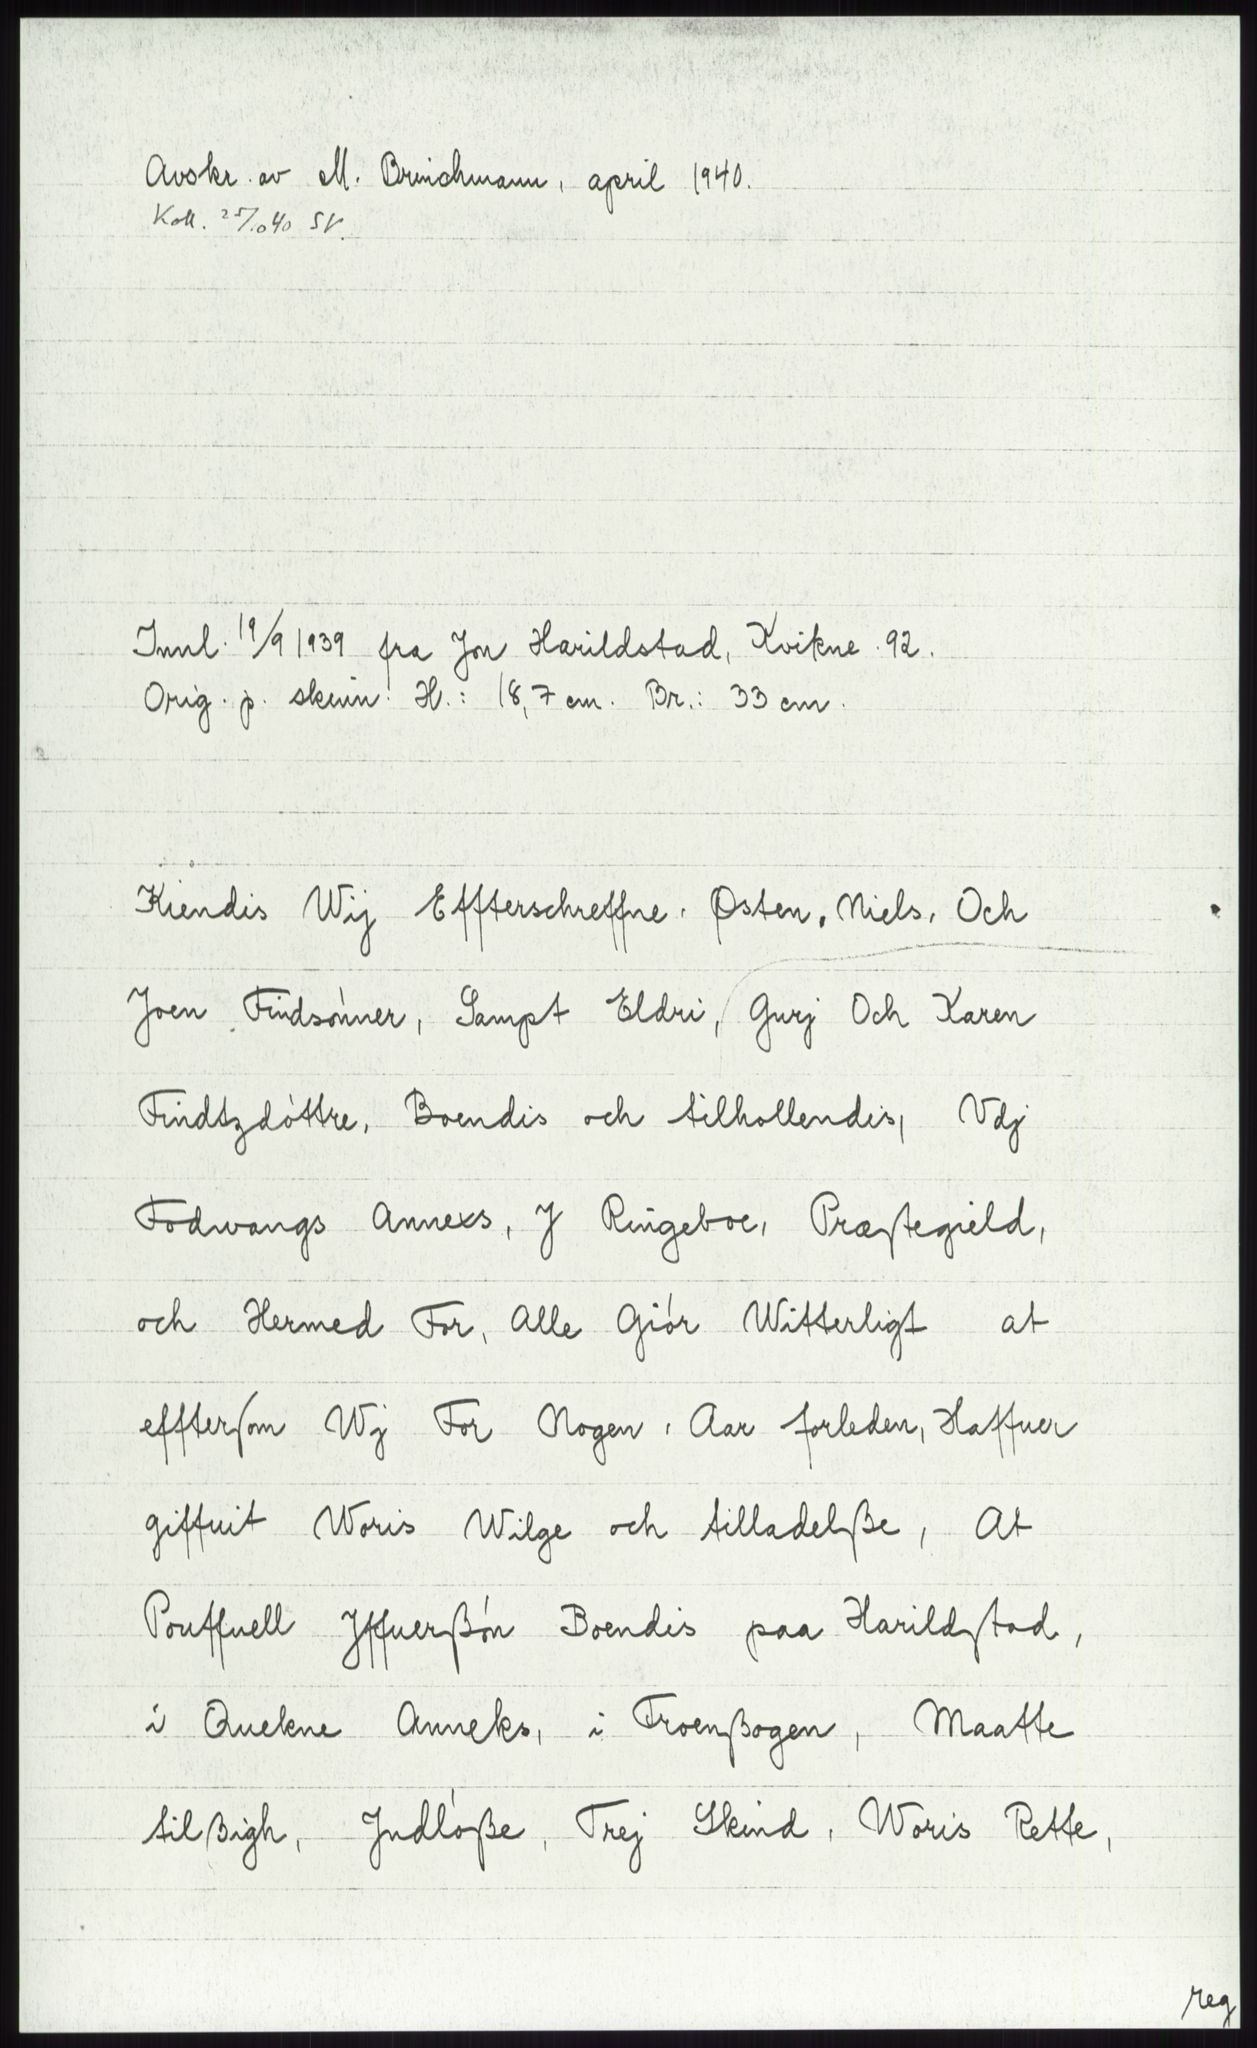 Avskr. av M. Brinchmann, april 1940.
Koll. 25/10 40 SV.
Innl. 19/9 1939 fra Jon Harildstad, Kvikne. 92.
Orig. p. skinn. H.: 18,7 cm. Br.: 33 cm.
Kiendis Wij Effterschreffne. Østen, Niels, Och
Joen Findsónner, Sampt Eldri, Gurj Och Karen
Findtzdóttre, Boendis och tilhollendis, Vdj
Fodwangs Annexs, J Ringeboe, Præſtegield,
och Hermed For, Alle Giór Witterligt at
effterſom Wj For Nogen, Aar forleden, Haffuer
giffuit Woris Wilge och tilladelße, At
Pouffuell Jffuerßón Boendis paa Harildſtad,
i Quekne Anneks, i Froenßogen, Maatte
til ßigh, Jndlóße, Trej Skind, Woris Rette,
reg